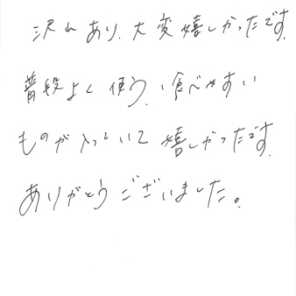 沢山あり、大変嬉しかったです。
普段よく使う、食べやすい
ものが入っていて嬉しかったです。
ありがとうございました。